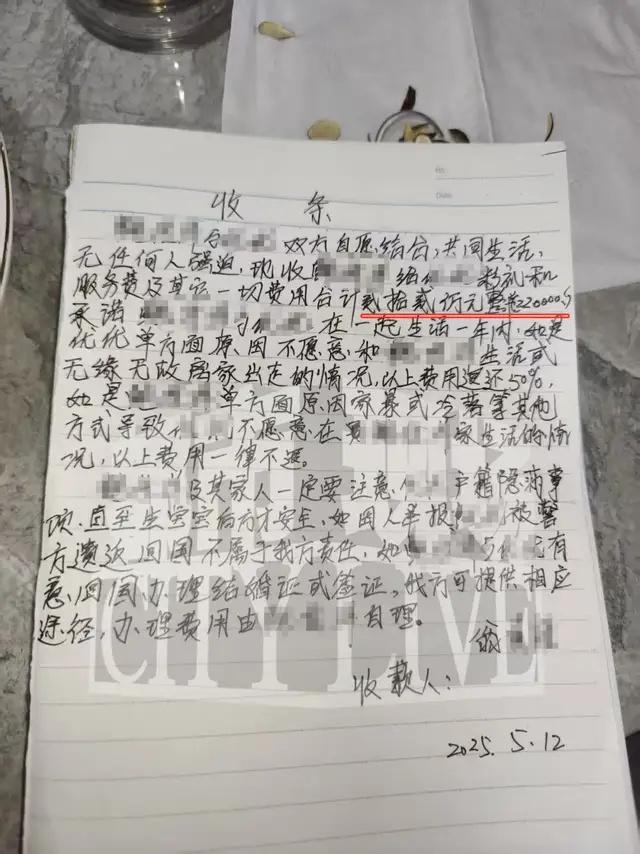 No:
Date:
收 条
双方自愿结合,共同生活,
无任何人强迫,现收 给 彩礼和
服务费及其它一切费用合计贰拾贰万元整(220000)
承诺 在一起生活一年内,如是
优优单方面原因不愿意和 生活或
无缘无故离家出走的情况,以上费用退还50%,
如是 单方面原因家暴或冷落等其他
方式导致 不愿意在 家生活的情
况,以上费用一律不退。
及其家人一定要注意 户籍隐满事
项,直至生宝宝后方才安全,如因人举报 被警
方遣返回国不属于我方责任,如 有
意,回国办理结婚证或签证,我方可提供相应
途径,办理费用由 自理。
收款人:
2025.5.12
CITY LIVE